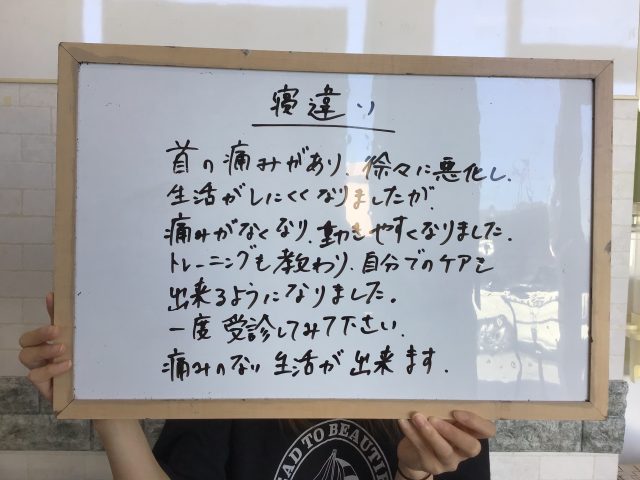 寝違い
首の痛みがあり、徐々に悪化し、
生活がしにくくなりましたが
痛みがなくなり、動きやすくなりました。
トレーニングも教わり、自分でのケアも
出来るようになりました。
一度受診してみて下さい。
痛みのない生活が出来ます。
AD TO BEAUTI